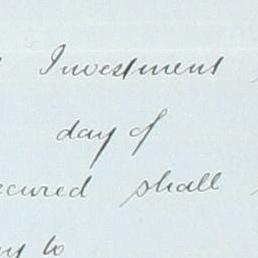 Investment
day of
ecured shall
to